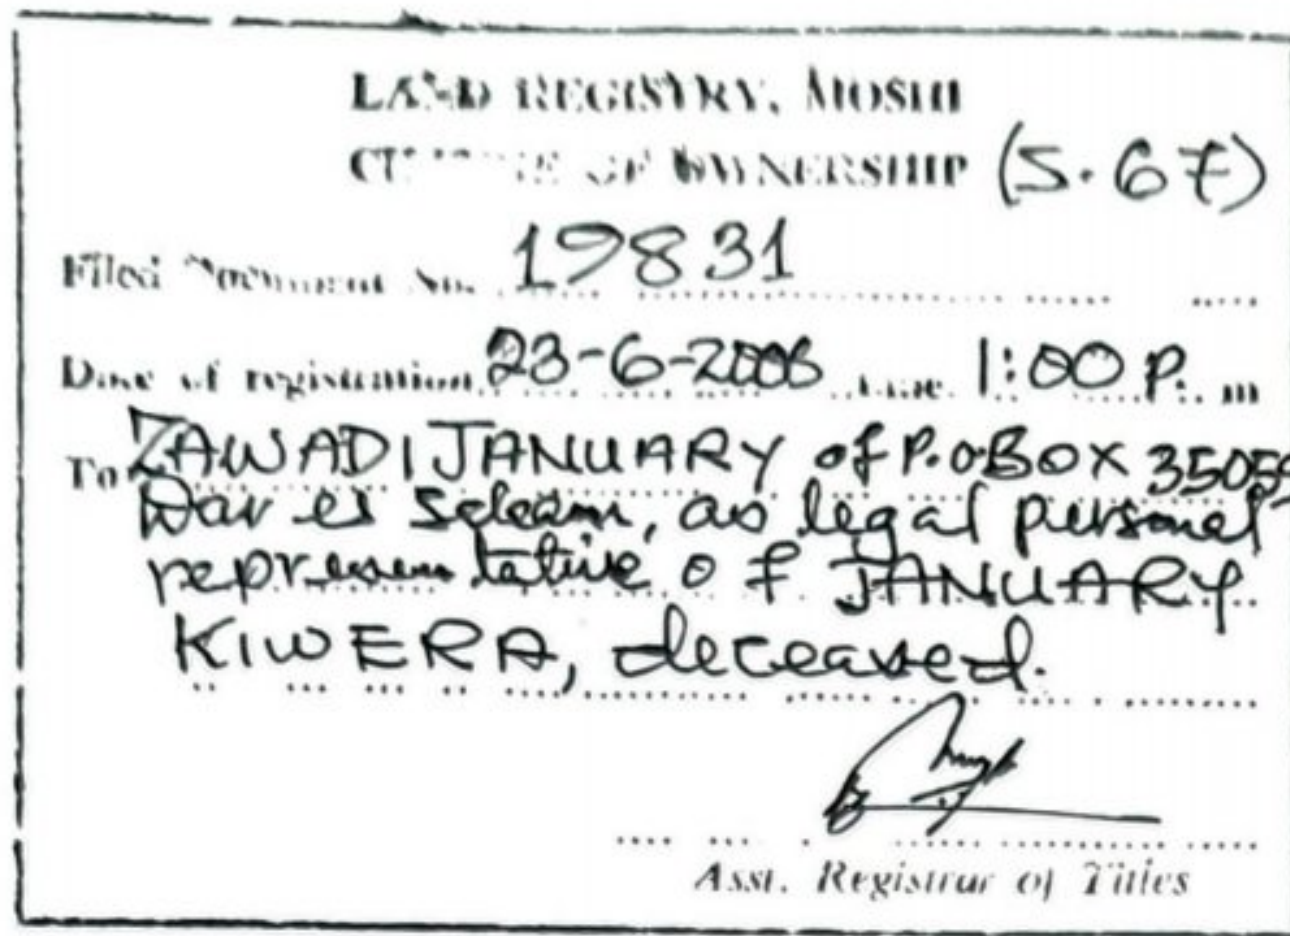 LAND REGISTRY, MOSHI
OF OWNERSHIP (S.67)
Filed Document No. 19831
Date of registration 23-6-2006 time 1:00 P. m
To ZAWADI JANUARY of P.O BOX 35059
Dar es Salaam, as legal personal
representative of JANUARY
KIWERA, deceased.
Asst. Registrar of Titles